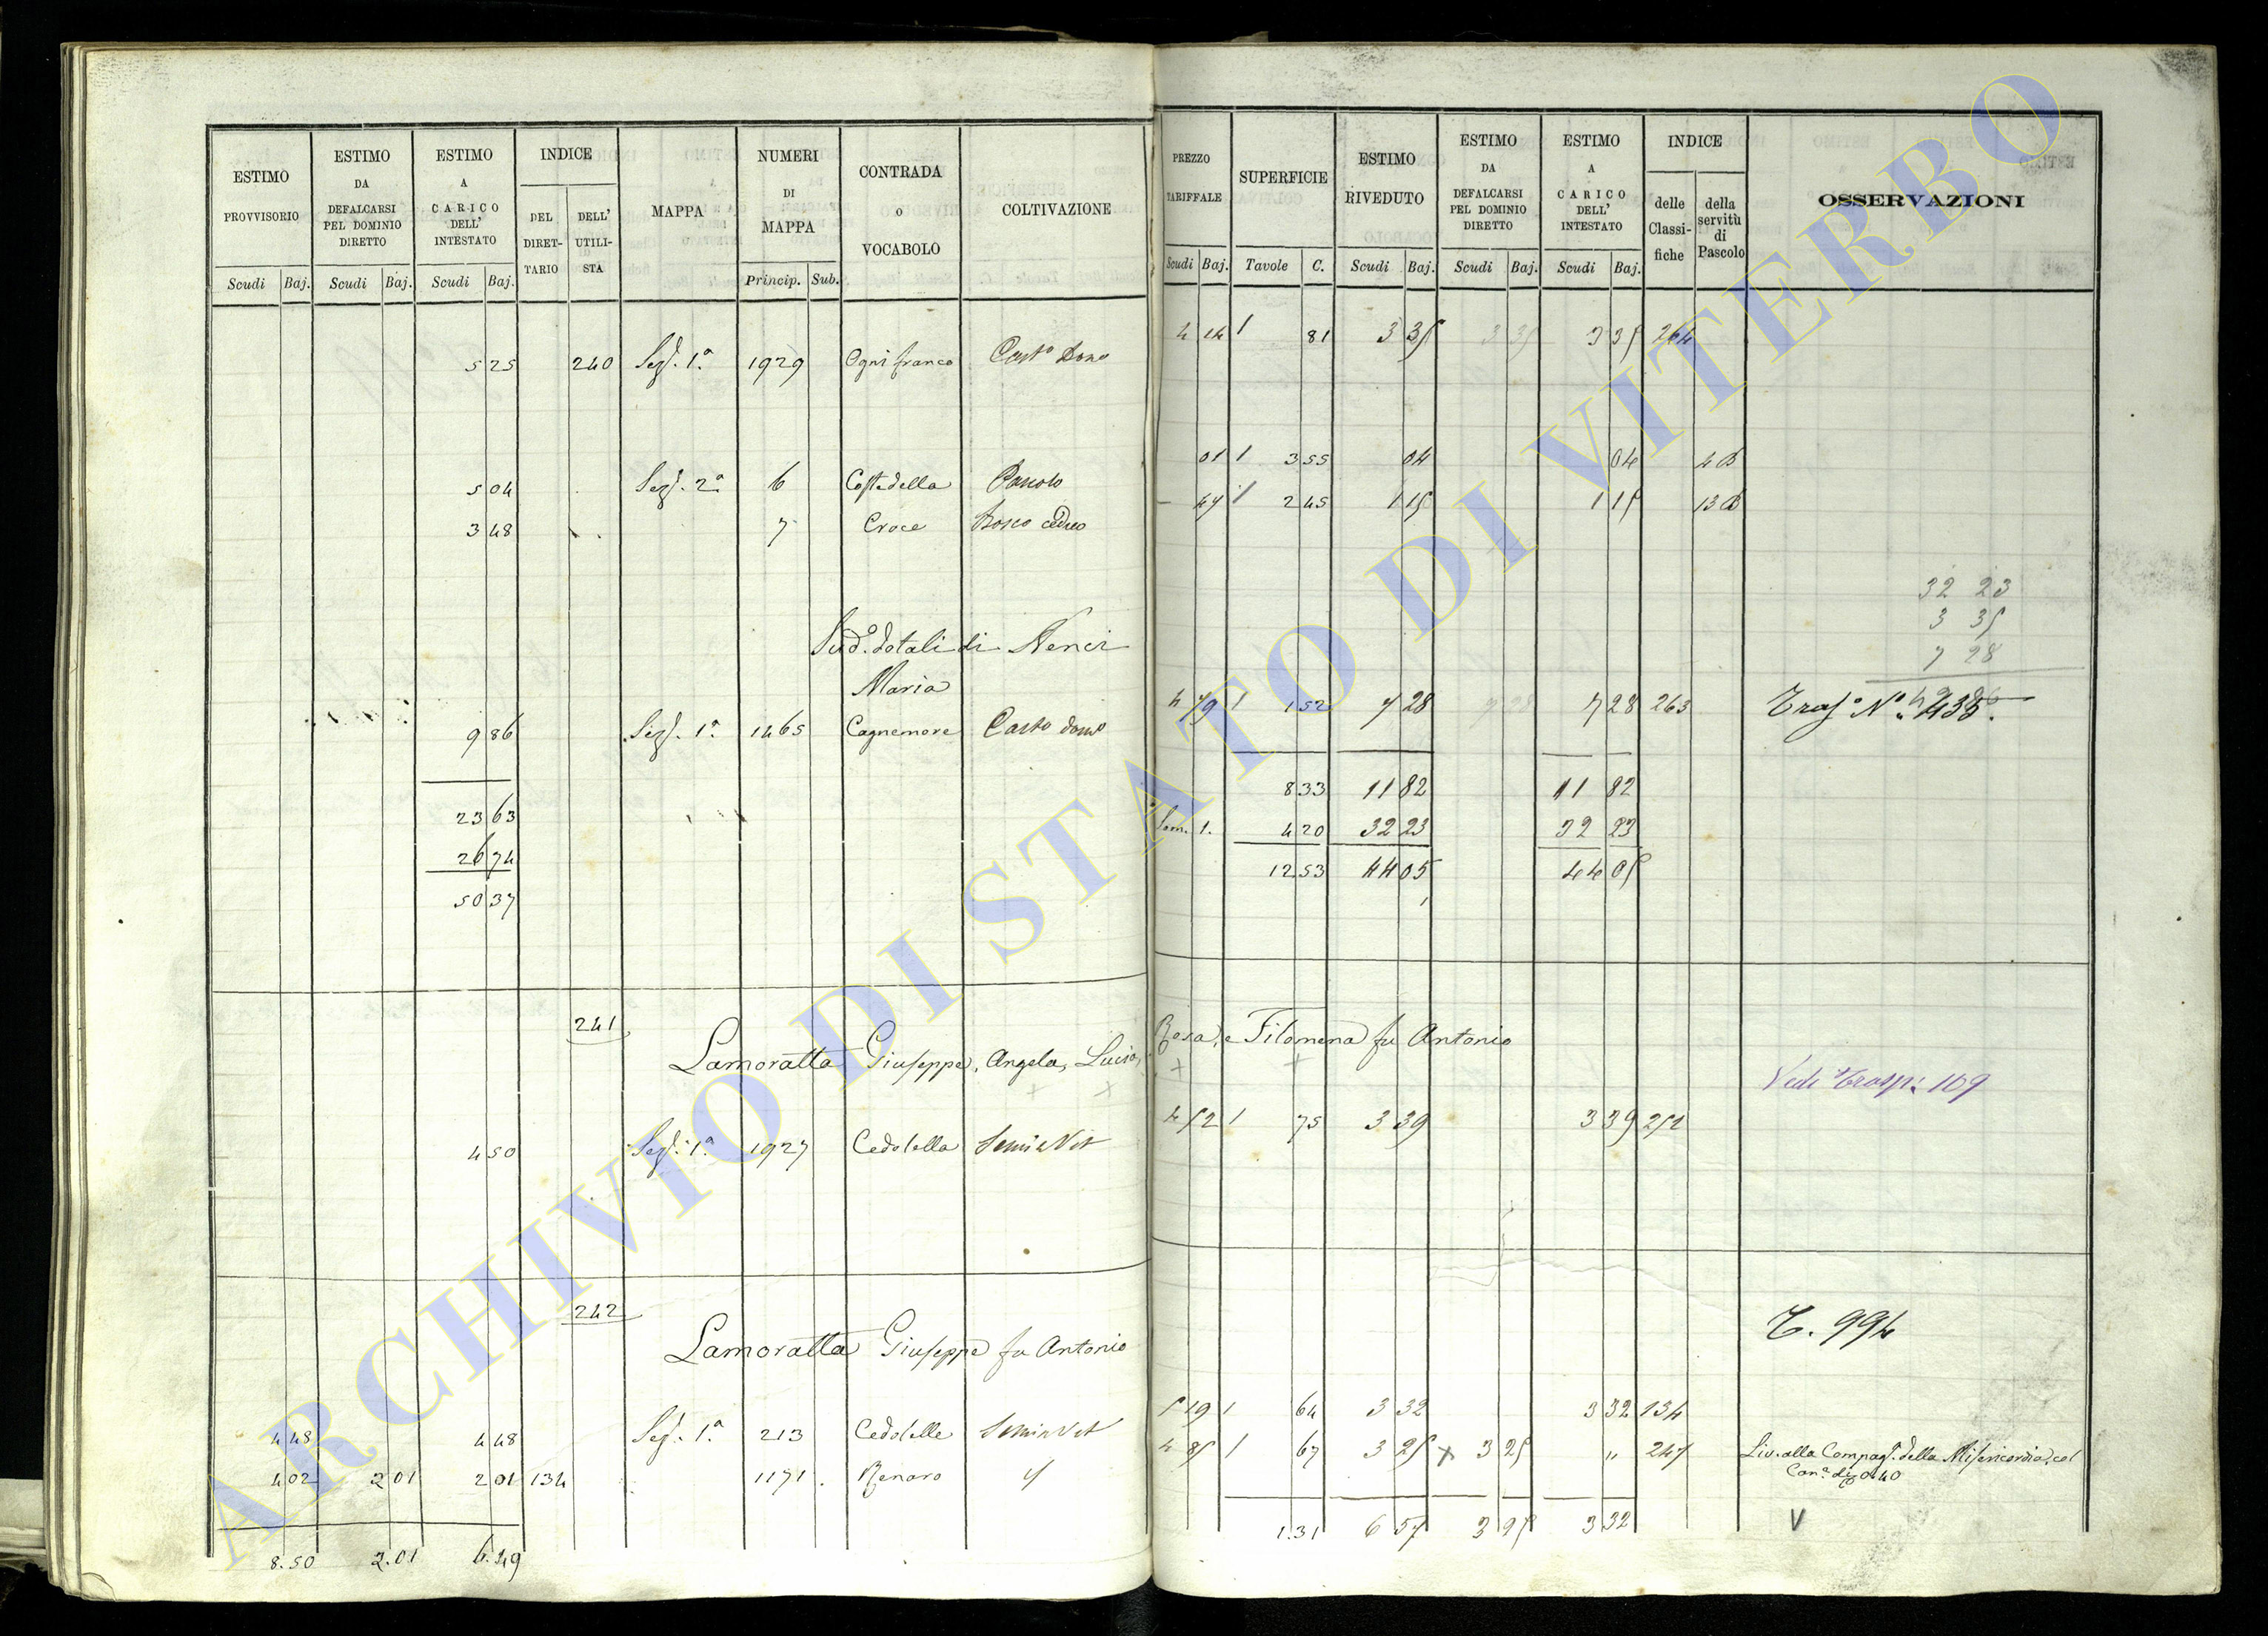 ESTIMO PROVVISORIO
ESTIMO DA DEFALCARSI PEL DOMINIO DIRETTO
ESTIMO A CARICO DELL' INTESTATO
INDICE
DEL DIRETTARIO
DELL' UTILISTA
MAPPA
NUMERI DI MAPPA
CONTRADA O VOCABOLO
COLTIVAZIONE
Scudi Baj. Scudi Baj. Scudi Baj. Princip. Sub.
PREZZO TARIFFALE
SUPERFICIE
ESTIMO RIVEDUTO
ESTIMO DA DEFALCARSI PEL DOMINIO DIRETTO
ESTIMO A CARICO DELL' INTESTATO
INDICE
delle Classifiche
della servitù di Pascolo
OSSERVAZIONI
Scudi Baj. Tavole C. Scudi Baj. Scudi Baj. Scudi Baj.
5 25 240 Sez. 1.a 1929 Ogni franco
81 3 35 3 35 3 35 264
5 04 Sez. 2.a 6 Costa della Pascolo
01 1 3 55 04 04 4 B
3 48 7 Croce Bosco ceduo
47 1 2 45 1 15 1 15 13 B
32 23
3 35
7 28
Sud.o dotali di Nenci
Maria
9 86 Sez. 1.a 1465 Cagnemore
1 1 52 7 28 7 28 7 28 263
23 63
8 33 11 82 11 82
26 74
Som. 1. 4 20 32 23 32 23
50 37
12 53 44 05 44 05
241
Lamoratta Giuseppe, Angela, Lucia, Rosa, e Filomena fu Antonio
Vedi Trasp. 109
4 50 Sez. 1.a 1927 Cedolella Semin Vit
4 52 1 75 3 39 3 39 252
242
Lamoratta Giuseppe fu Antonio
T. 994
4 48 4 48 Sez. 1.a 213 Cedolelle Semin Vit
5 19 1 64 3 32 3 32 134
4 02 2 01 2 01 134 1171 Renaro
4 85 1 67 3 25 x 3 25 " 247 Liv. alla Compag. della Misericordia col
Can.e di 0.40
8.50 2.01 6.49
1.31 6 57 3 25 3 32 V
ARCHIVIO DI STATO DI VITERBO